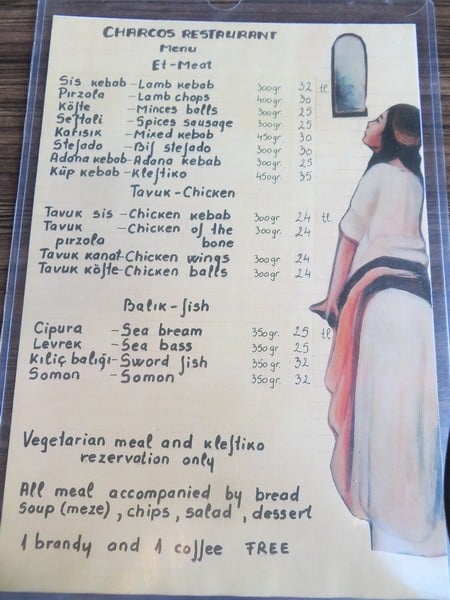 CHARCOS RESTAURANT
Menu
Et-Meat
Sis kebab -Lamb kebab 300gr. 32 tl
Pirzola -Lamb chops 400gr. 30
Köfte -Minces balls 300gr. 25
Seftali -Spices sausage 300gr. 25
Karisik -Mixed kebab 450gr. 30
Stefado -Bif stefado 300gr. 30
Adana kebab-Adana kebab 300gr. 25
Küp kebab -Kleftiko 450gr. 35
Tavuk-Chicken
Tavuk sis -Chicken kebab 300gr. 24 tl
Tavuk -Chicken of the 300gr. 24
pirzola bone
Tavuk kanat-Chicken wings 300gr. 24
Tavuk köfte-Chicken balls 300gr. 24
Balik-fish
Cipura -Sea bream 350gr. 25 tl
Levrek -Sea bass 350gr. 25
Kiliç baliği-Sword fish 350gr. 32
Somon -Somon 350gr. 32
Vegetarian meal and kleftiko
rezervation only
All meal accompanied by bread
soup (meze) , chips , salad , dessert
1 brandy and 1 coffee FREE